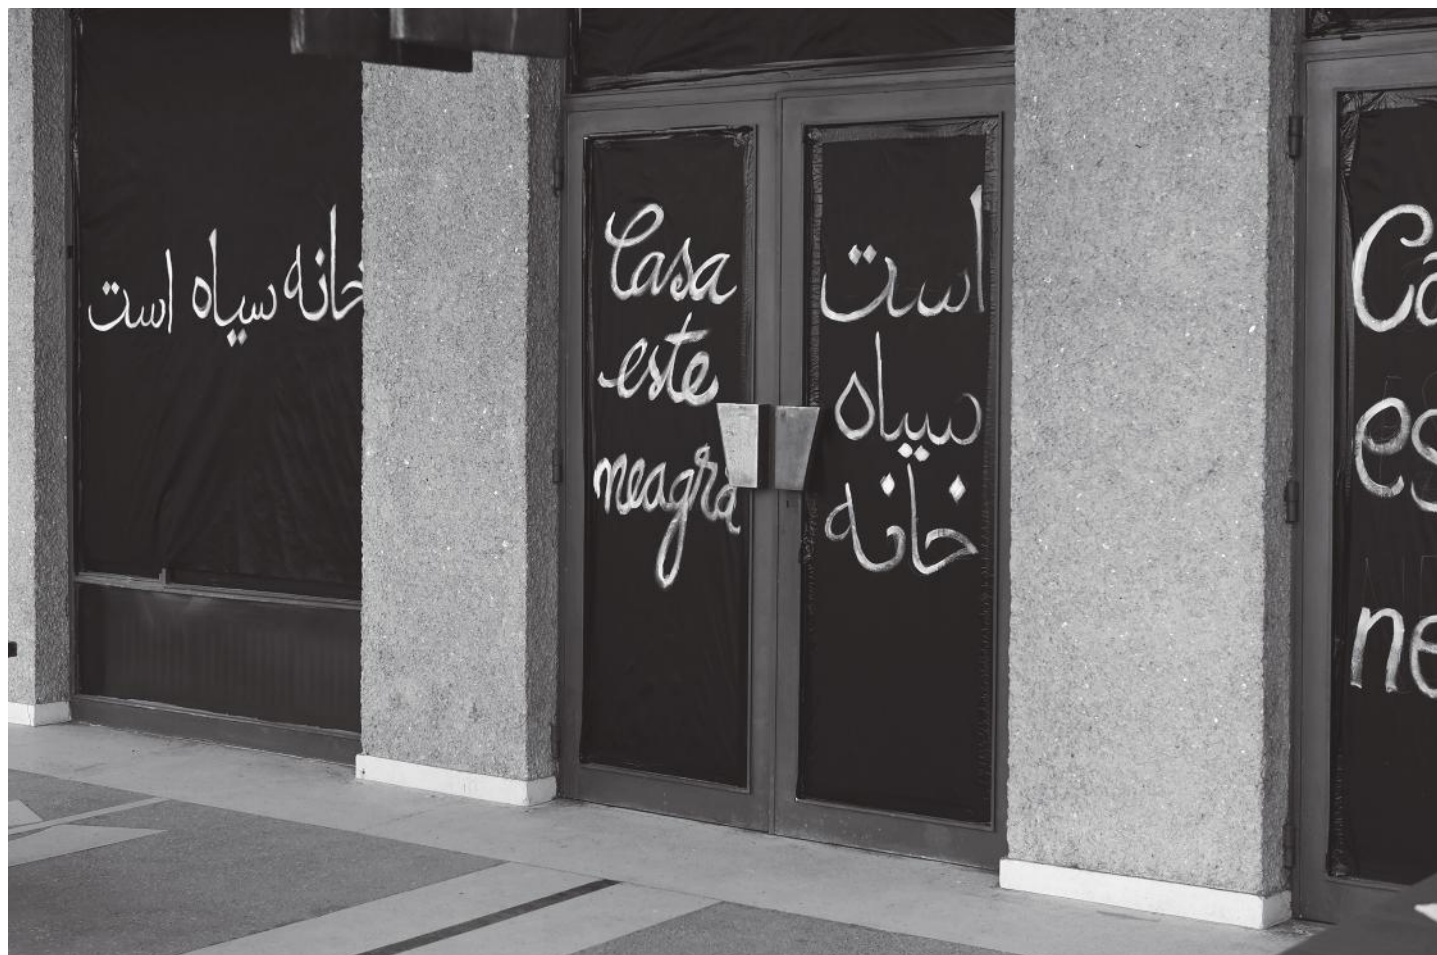 خانه سیاه است
Casa
este
neagră
است
سیاه
خانه
Ca
es
ne